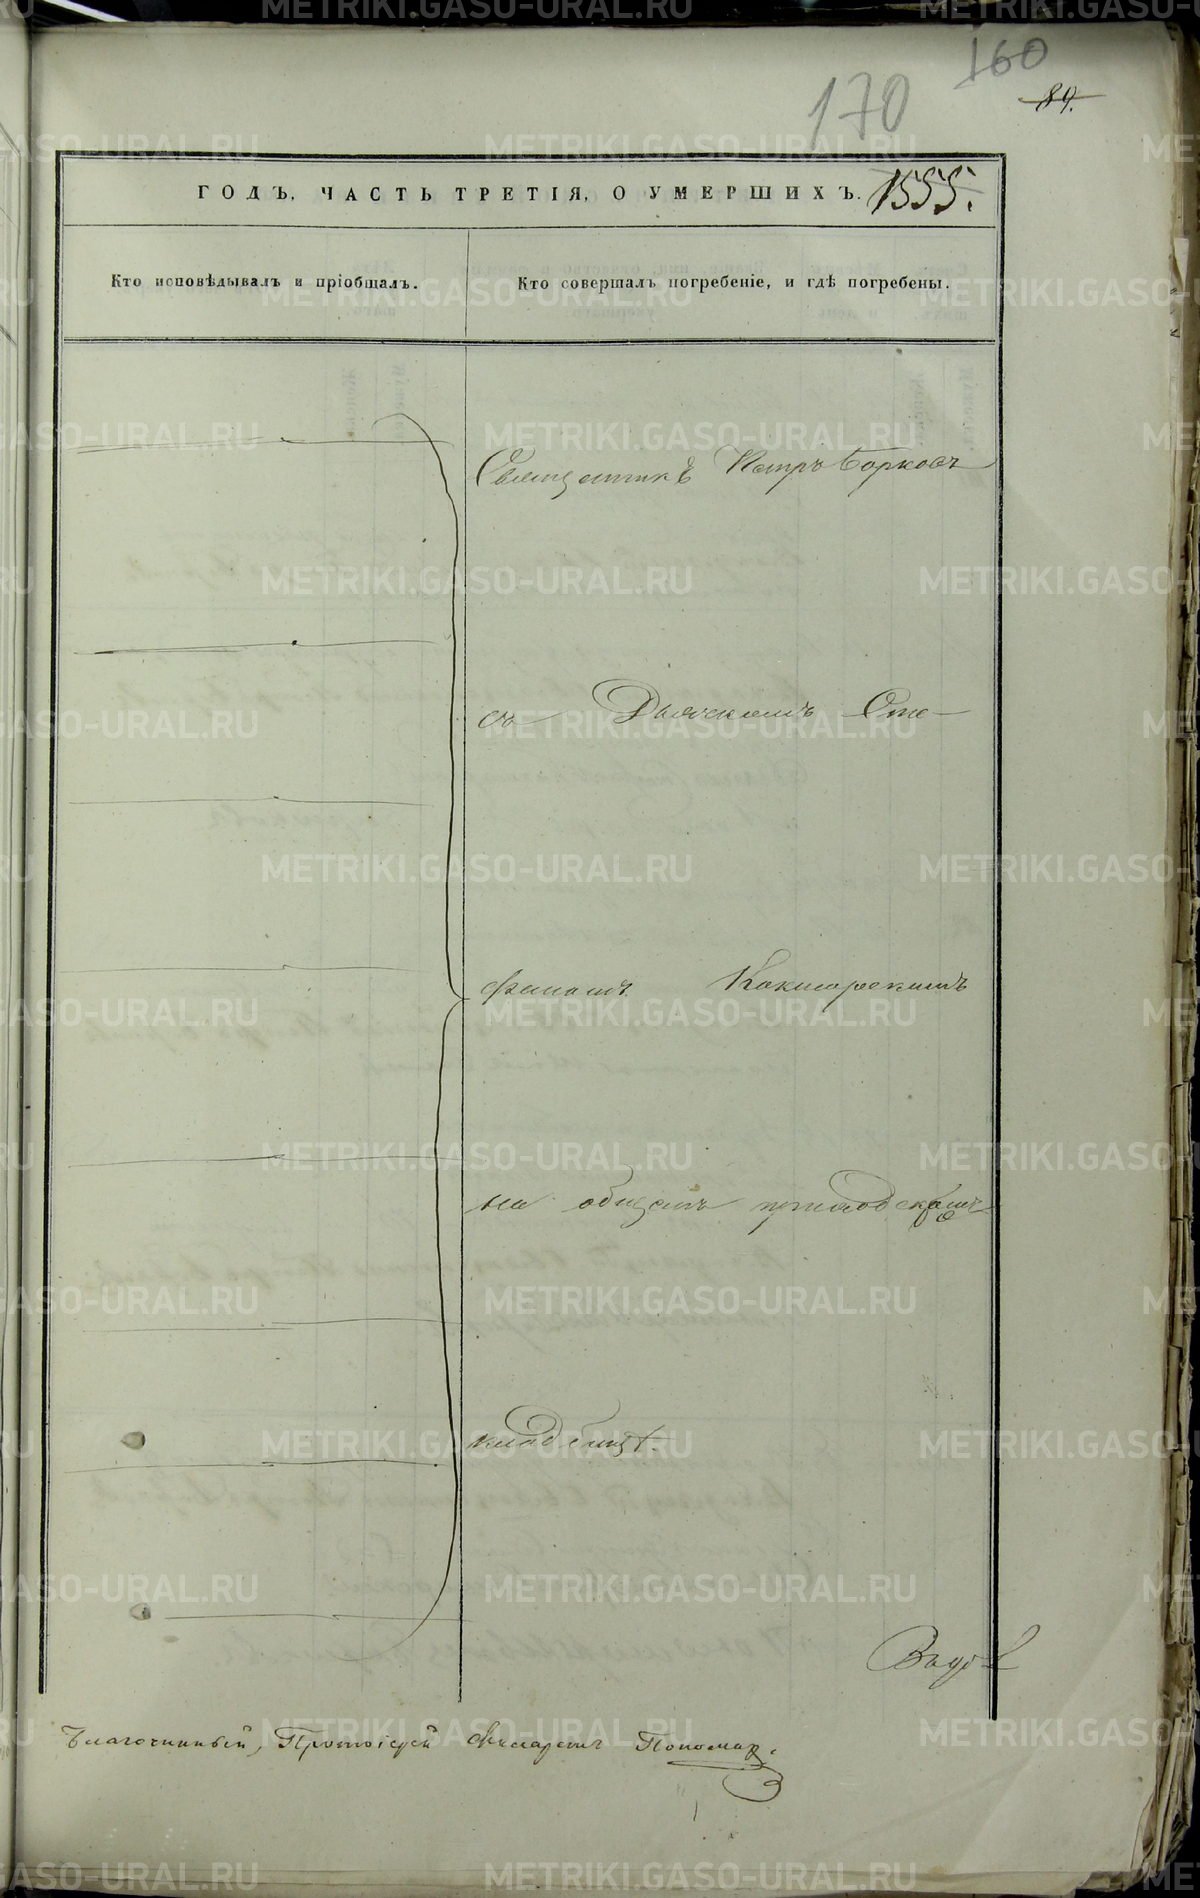 160
170
89.
ГОДЪ. ЧАСТЬ ТРЕТІЯ, О УМЕРШИХЪ. 1855.
Кто исповѣдывалъ и пріобщалъ.
Кто совершалъ погребеніе, и гдѣ погребены.
Священникъ Петръ Борковъ
съ Дьячкомъ Сте-
фаномъ Кокшарскимъ
на общемъ приходскомъ
кладбищѣ.
Благочинный, Протоіерей Пономар.
METRIKI.GASO-URAL.RU